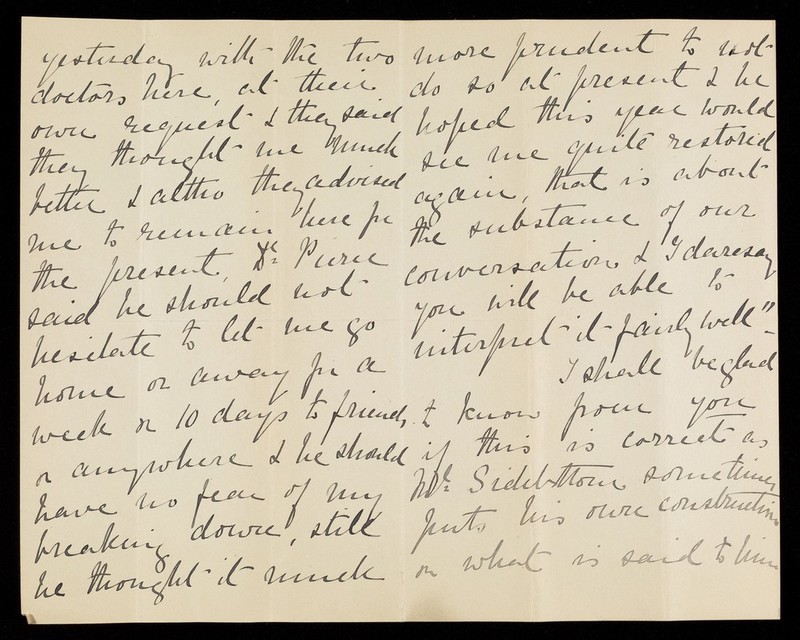 yesterday with the two
doctors here, at their
own request & they said
they thought me much
better & altho they advised
me to remain here for
the present, Dr.
said he should not
hesitate to let me go
home or away for a
week or 10 days to friends,
or anywhere & he should
have no fear of my
breaking down, still
he thought it much
more prudent to not
do so at present & he
hoped this year would
see me quite restored
again, that is about
the substance of our
conversation & I daresay
you will be able to
interpret it fairly well"-
I shall be glad
to know from you
if this is correct as
Mr. Sidebottom sometimes
puts his own construction
on what is said to him